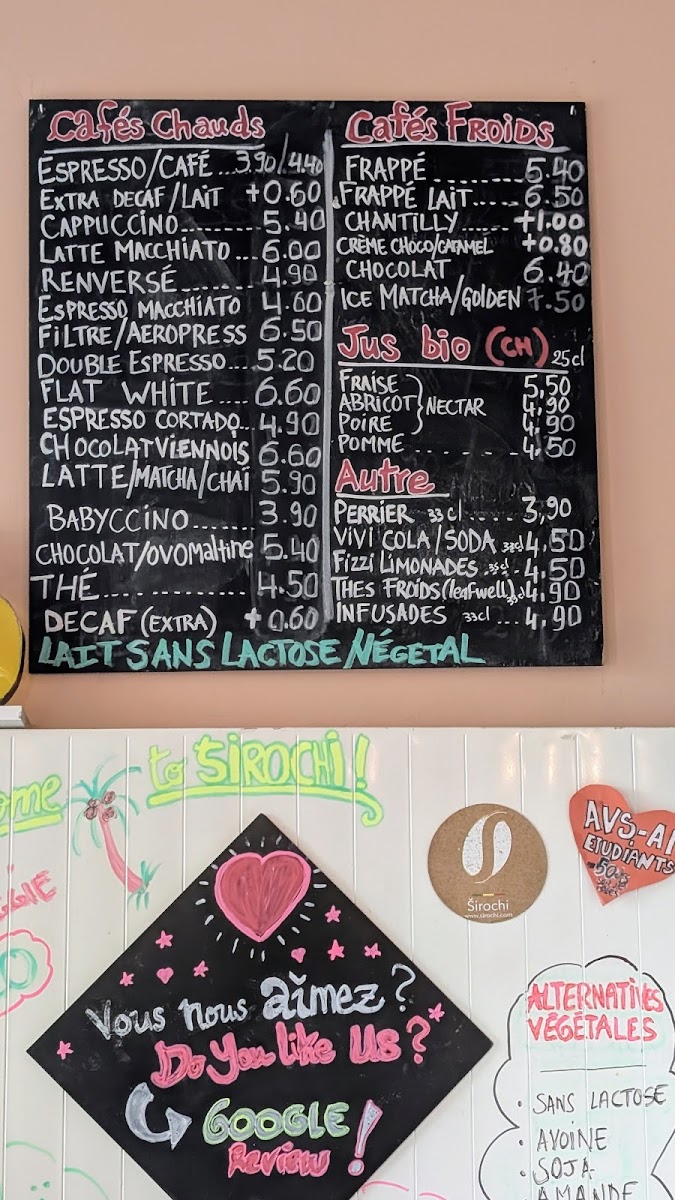 Cafés Chauds
ESPRESSO/CAFÉ ...3.90/4.40
EXTRA DECAF/LAIT +0.60
CAPPUCCINO......... 5.40
LATTE MACCHIATO ... 6.00
RENVERSÉ....... 4.90
ESPRESSO MACCHIATO 4.60
FILTRE/AEROPRESS 6.50
DOUBLE ESPRESSO....5.20
FLAT WHITE .... 6.60
ESPRESSO CORTADO... 4.90
CHOCOLAT VIENNOIS 6.60
LATTE/MATCHA/CHAÍ 5.90
BABYCCINO....... 3.90
CHOCOLAT/OVOMALTINE 5.40
THÉ............... 4.50
DECAF (EXTRA) + 0.60
LAIT SANS LACTOSE/VÉGETAL
Cafés FROIDS
FRAPPÉ .......... 5.40
FRAPPÉ LAIT..... 6.50
CHANTILLY...... +1.00
CRÈME CHOCO/CARAMEL +0.80
CHOCOLAT 6.40
ICE MATCHA/GOLDEN 7.50
Jus bio (CH) 25cl
FRAISE 5,50
ABRICOT NECTAR 4.90
POIRE 4.90
POMME .......... 4.50
Autre
PERRIER 33 cl ..... 3,90
VIVI COLA/SODA 33cl 4,50
FIZZI LIMONADES 33cl 4.50
THES FROIDS (leafwell) 33cl 4.90
INFUSADES 33cl ... 4,90
to SIROCHI!
Širochi
www.sirochi.com
ETUDIANTS
Vous nous aimez?
Do You like Us?
GOOGLE
Review!
ALTERNATIVES
VÉGÉTALES
• SANS LACTOSE
• AVOINE
• SOJA
AMANDE